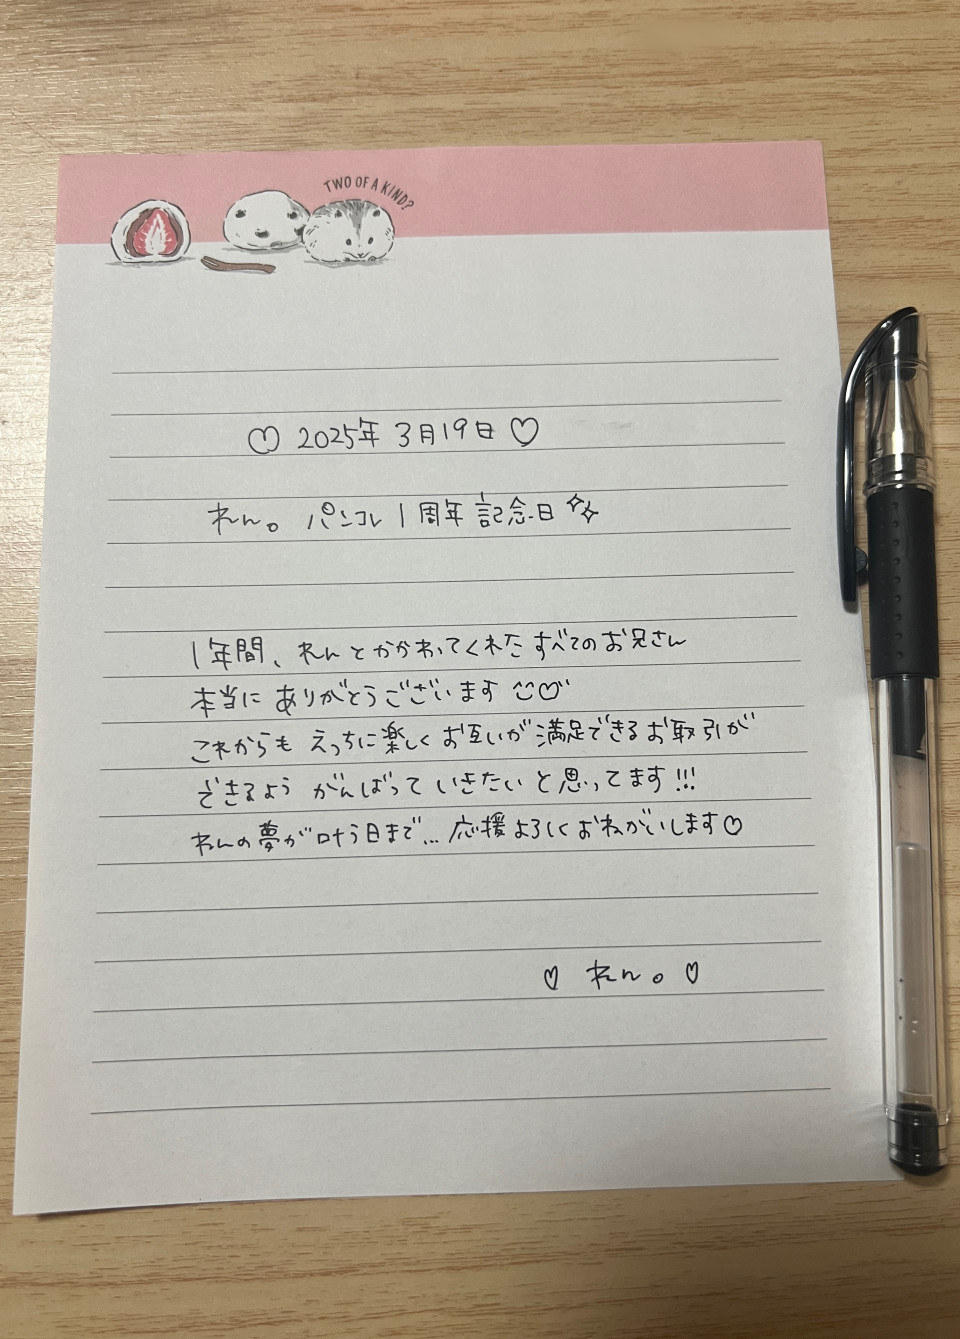 TWO OF A KIND?
♡ 2025年3月19日 ♡
れん。パンコレ1周年記念日✨
1年間、れんとかかわってくれたすべてのお兄さん
本当にありがとうございます
これからもえっちに楽しくお互いが満足できるお取引が
できるようがんばっていきたいと思ってます!!!
れんの夢が叶う日まで...応援よろしくおねがいします♡
♡ れん。♡